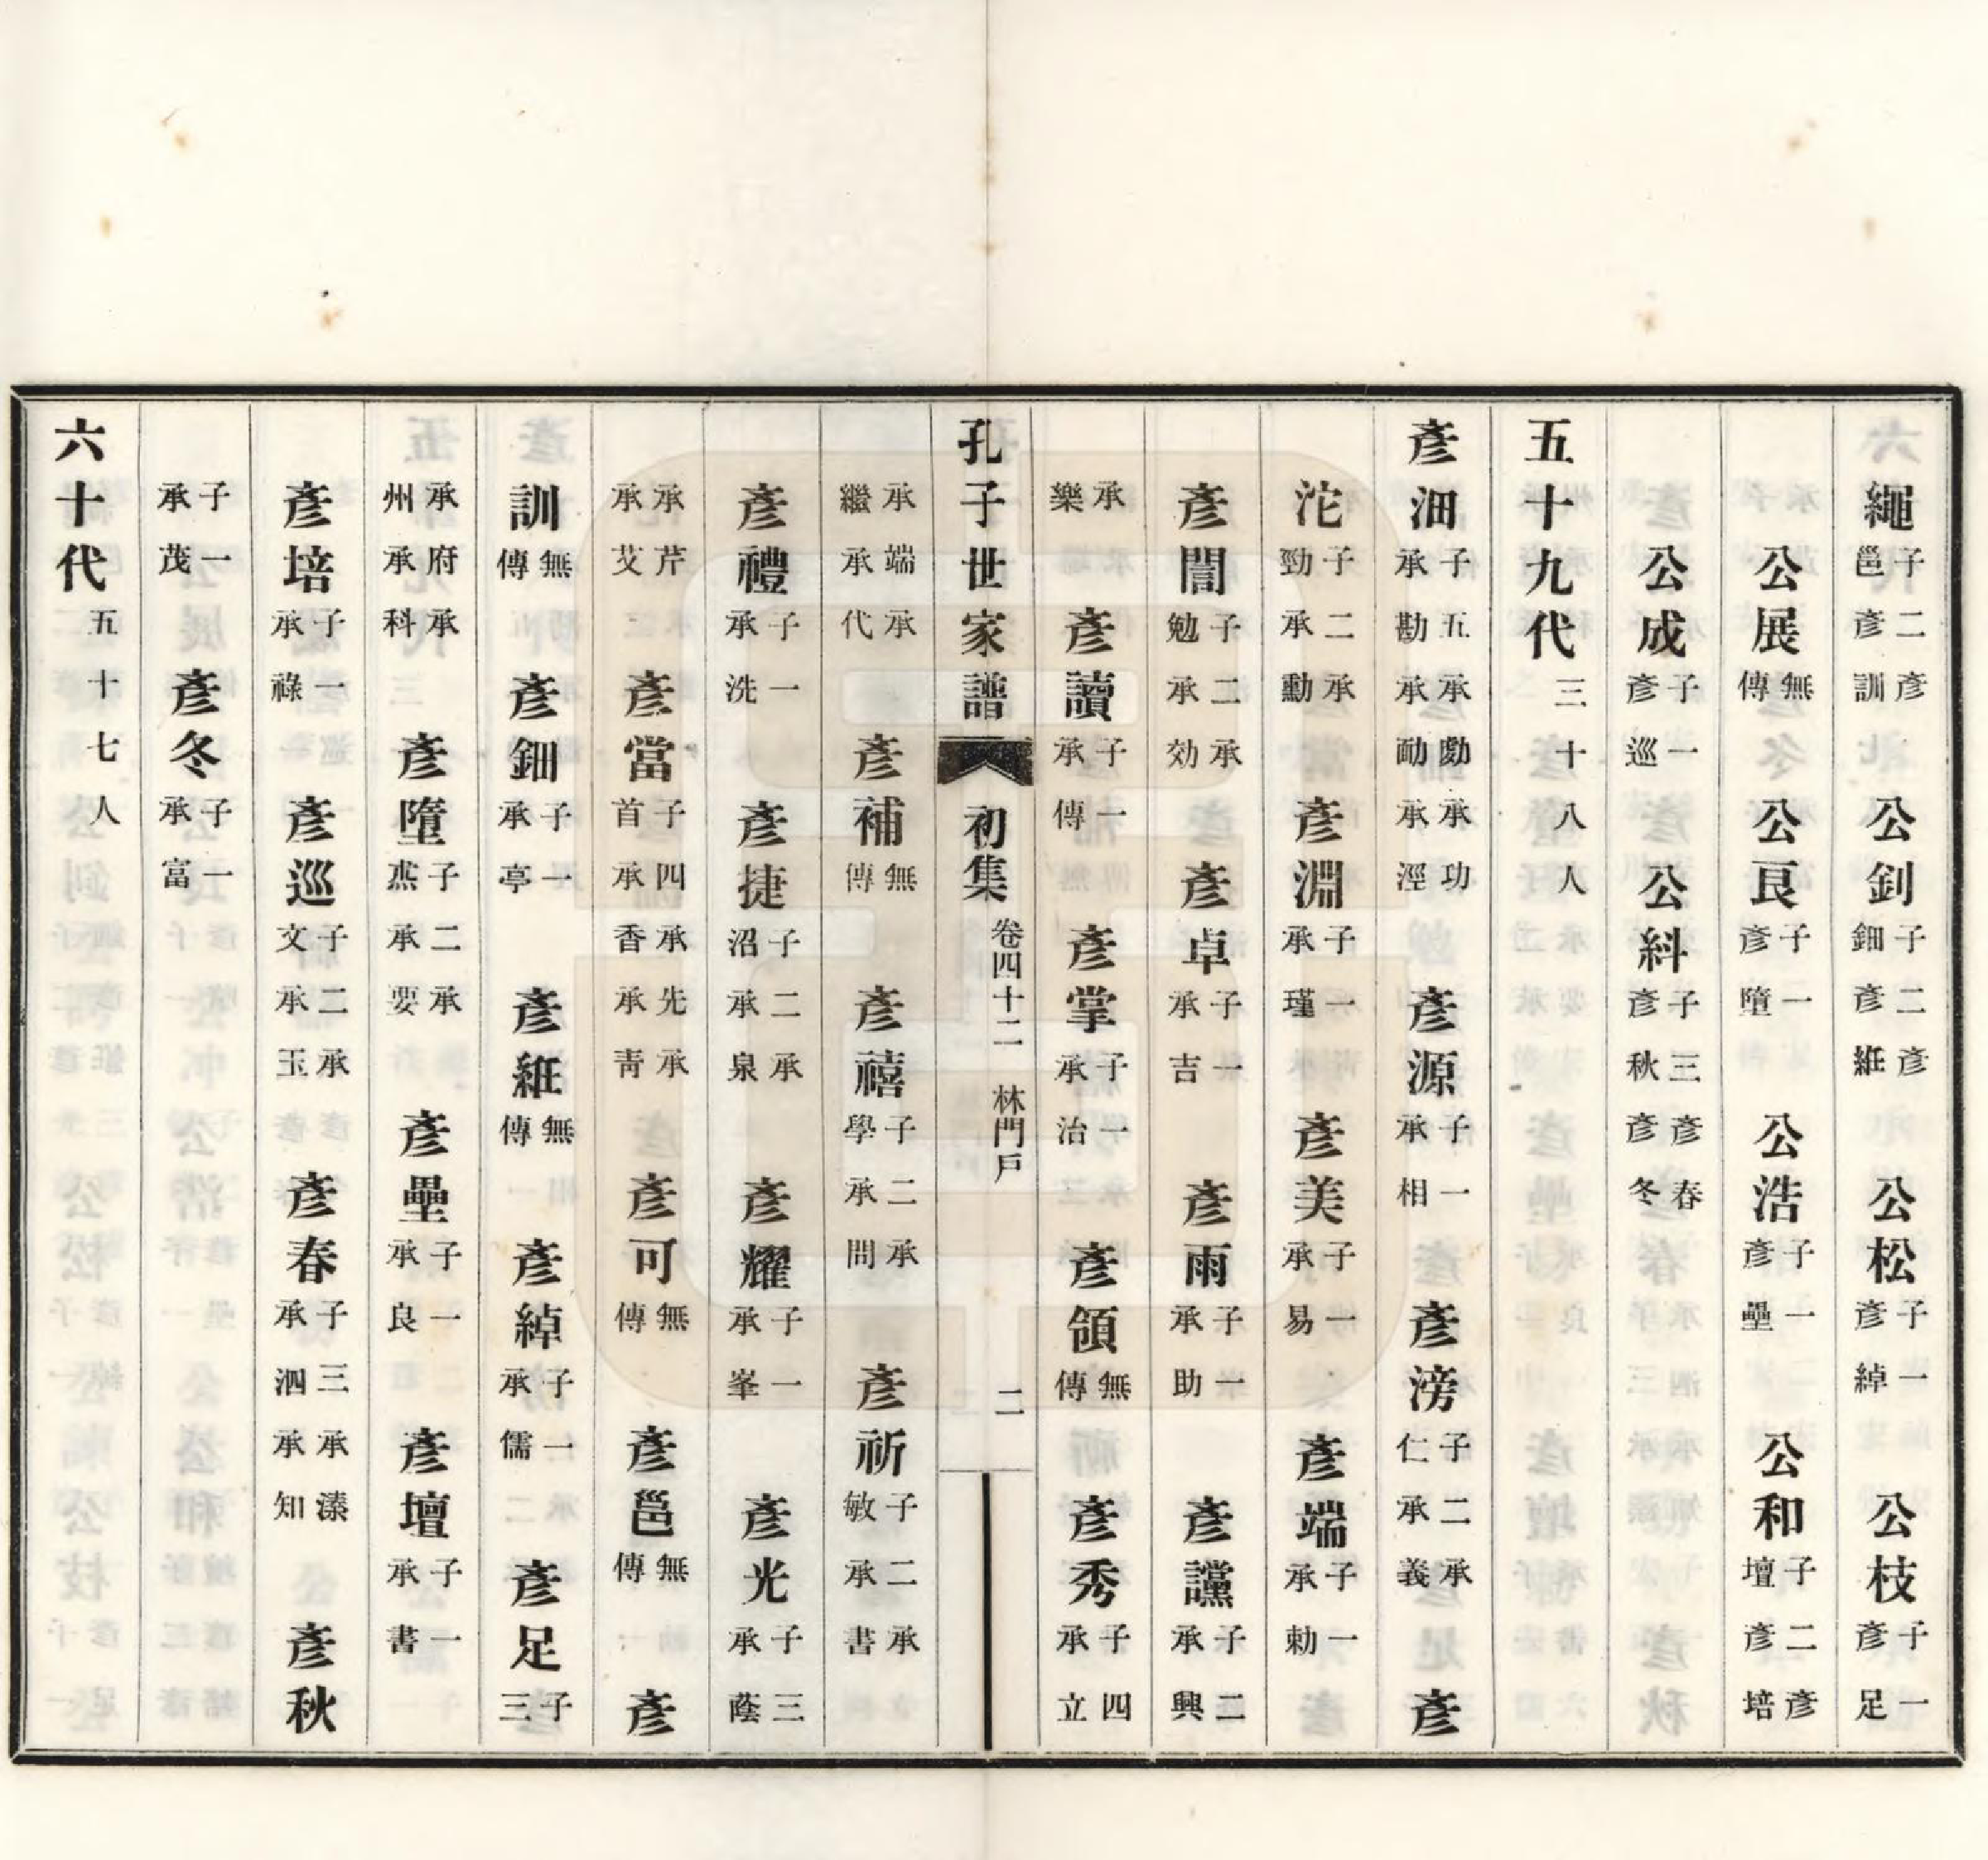 繩子二彥邕彥訓 公釗子二彥鈿彥絍 公松子一彥綽 公枝子一彥足
公展無傳 公艮子一彥墮 公浩子一彥壘 公和子二彥壇彥培
公成子一彥巡 公紏子三彥春彥秋彥冬
五十九代三十八人
彥沺子五承勷承功承勘承勔承涇 彥源子一承相 彥滂子二承仁承義 彥
沱子二承勁承勳 彥淵子一承瑾 彥美子一承易 彥端子一承勅
彥誾子二承勉承効 彥卓子一承吉 彥雨子一承助 彥讜子二承興
承樂 彥讀子一承傳 彥掌子一承治 彥領無傳 彥秀子四承立
孔子世家譜 初集 卷四十二 林門戶 二
承端承繼承代 彥補無傳 彥禧子二承學承問 彥祈子二承敏承書
彥禮子一承洗 彥捷子二承沼承泉 彥耀子一承峯 彥光子三承蔭
承芹承艾 彥當子四承先承首承香承靑 彥可無傳 彥邕無傳 彥
訓無傳 彥鈿子一承亭 彥絍無傳 彥綽子一承儒 彥足子三
承府承州承科 彥墮子二承燕承要 彥壘子一承良 彥壇子一承書
彥培子一承祿 彥巡子二承文承玉 彥春子三承溱承泗承知 彥秋
子一承茂 彥冬子一承富
六十代五十七人